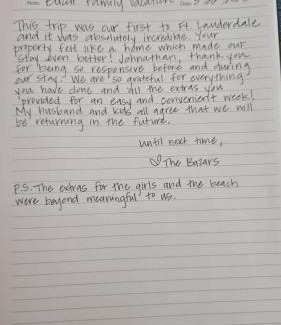 Family Vacation
This trip was our first to Ft. Lauderdale
and it was absolutely incredible. Your
property felt like a home which made our
stay even better! Johnathan, thank you
for being so responsive before and during
our stay! We are so grateful for everything
you have done and all the extras you
provided for an easy and convenient week!
My husband and kids all agree that we will
be returning in the future.
until next time,
The Bazars
P.S. The extras for the girls and the beach
were beyond meaningful to us.